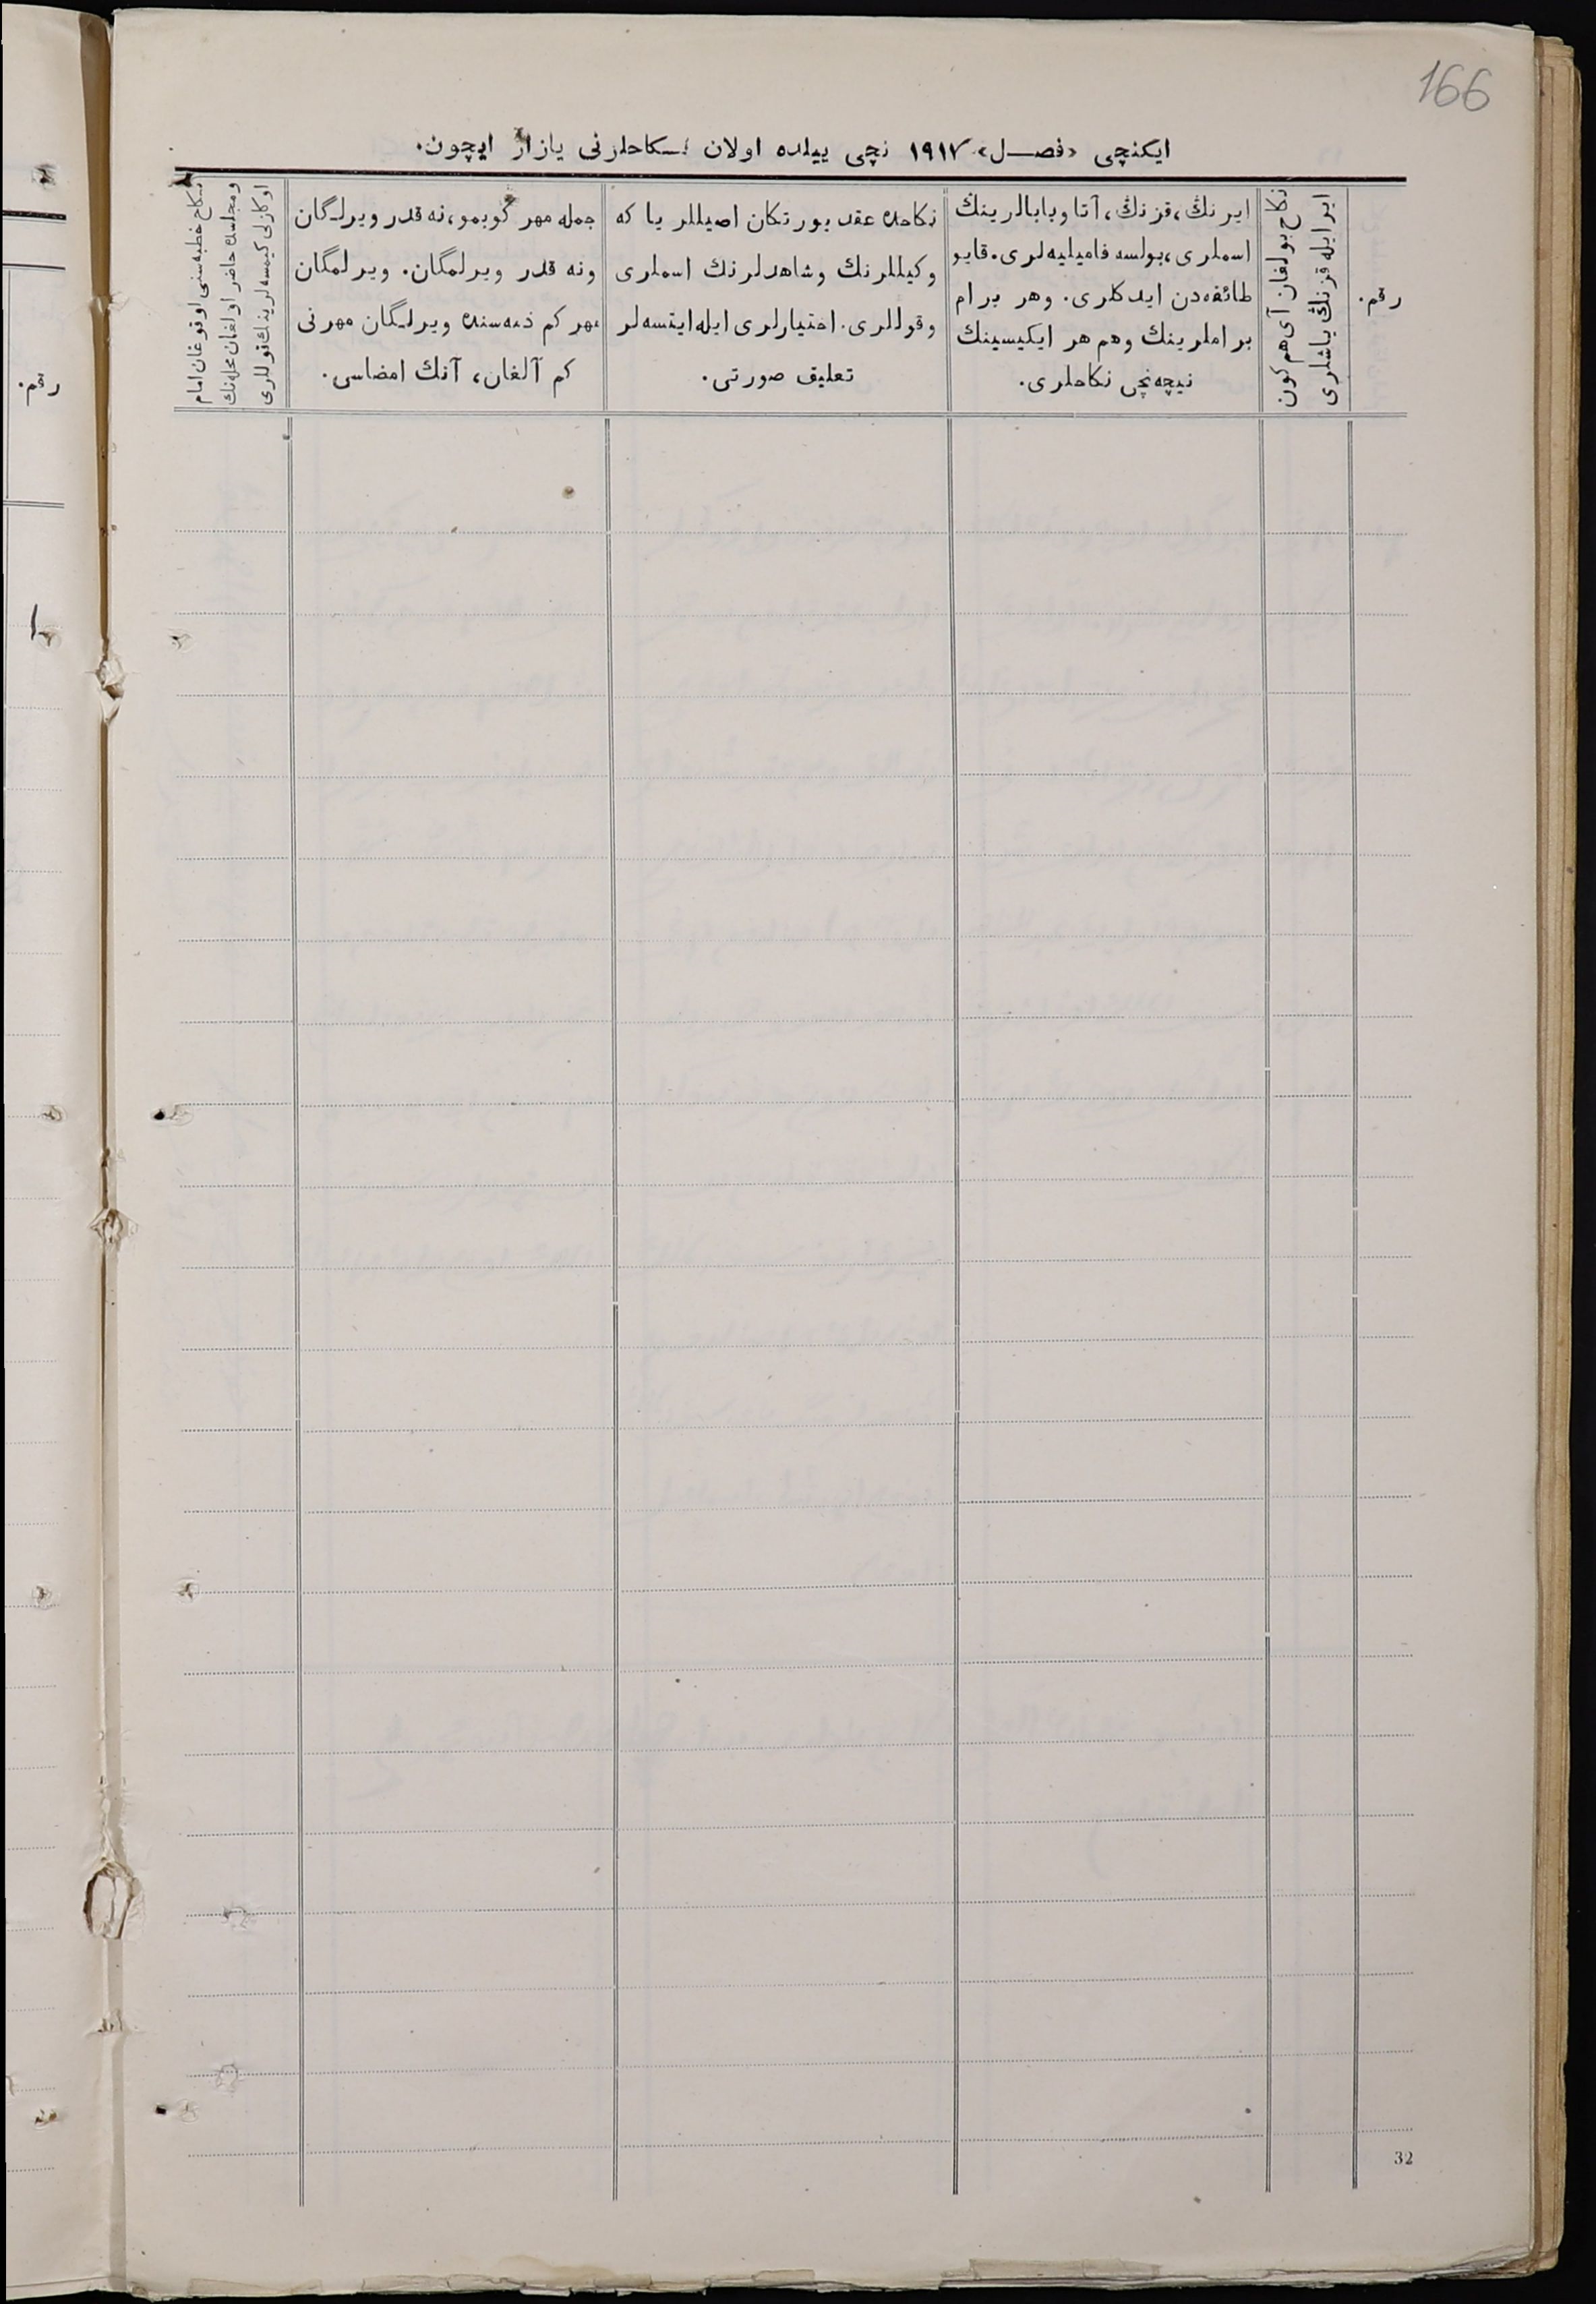 166
ایکنچی «فصـــل» ۱۹۱۷ نچی ییلده اولان نـکاحلرنی یازار ایچون.
رقم.
ایر ایله قزنڭ یاشلری
نکاح بولغان آی هم کون
ایرنڭ، قزنڭ، آتا وبابالرینڭ
اسملری، بولسه فامیلیه‌لری. قایو
طائفه‌دن ایدکلری. وهر برام
براملرینڭ وهم هر ایکیسینڭ
نیچه‌نچی نکاحلری.
نکاحده عقد یورتکان اصیللر یا که
وکیللرنڭ وشاهدلرنڭ اسملری
وقوللری. اختیارلری ایله ایتسه‌لر
تعلیق صورتی.
جمله مهر کوبمو، نه قدر ویرلـگان
ونه قدر ویرلمگان. ویرلمگان
مهر کم ذمه‌سنده ویرلـگان مهرنی
کم آلغان، آنڭ امضاسی.
نکاح خطبه‌سنی اوقوغان امام
ومجلسده حاضر اولغان محله‌نڭ
اوکازنی کیمسه‌لرینڭ قوللری
رقم.
1
32